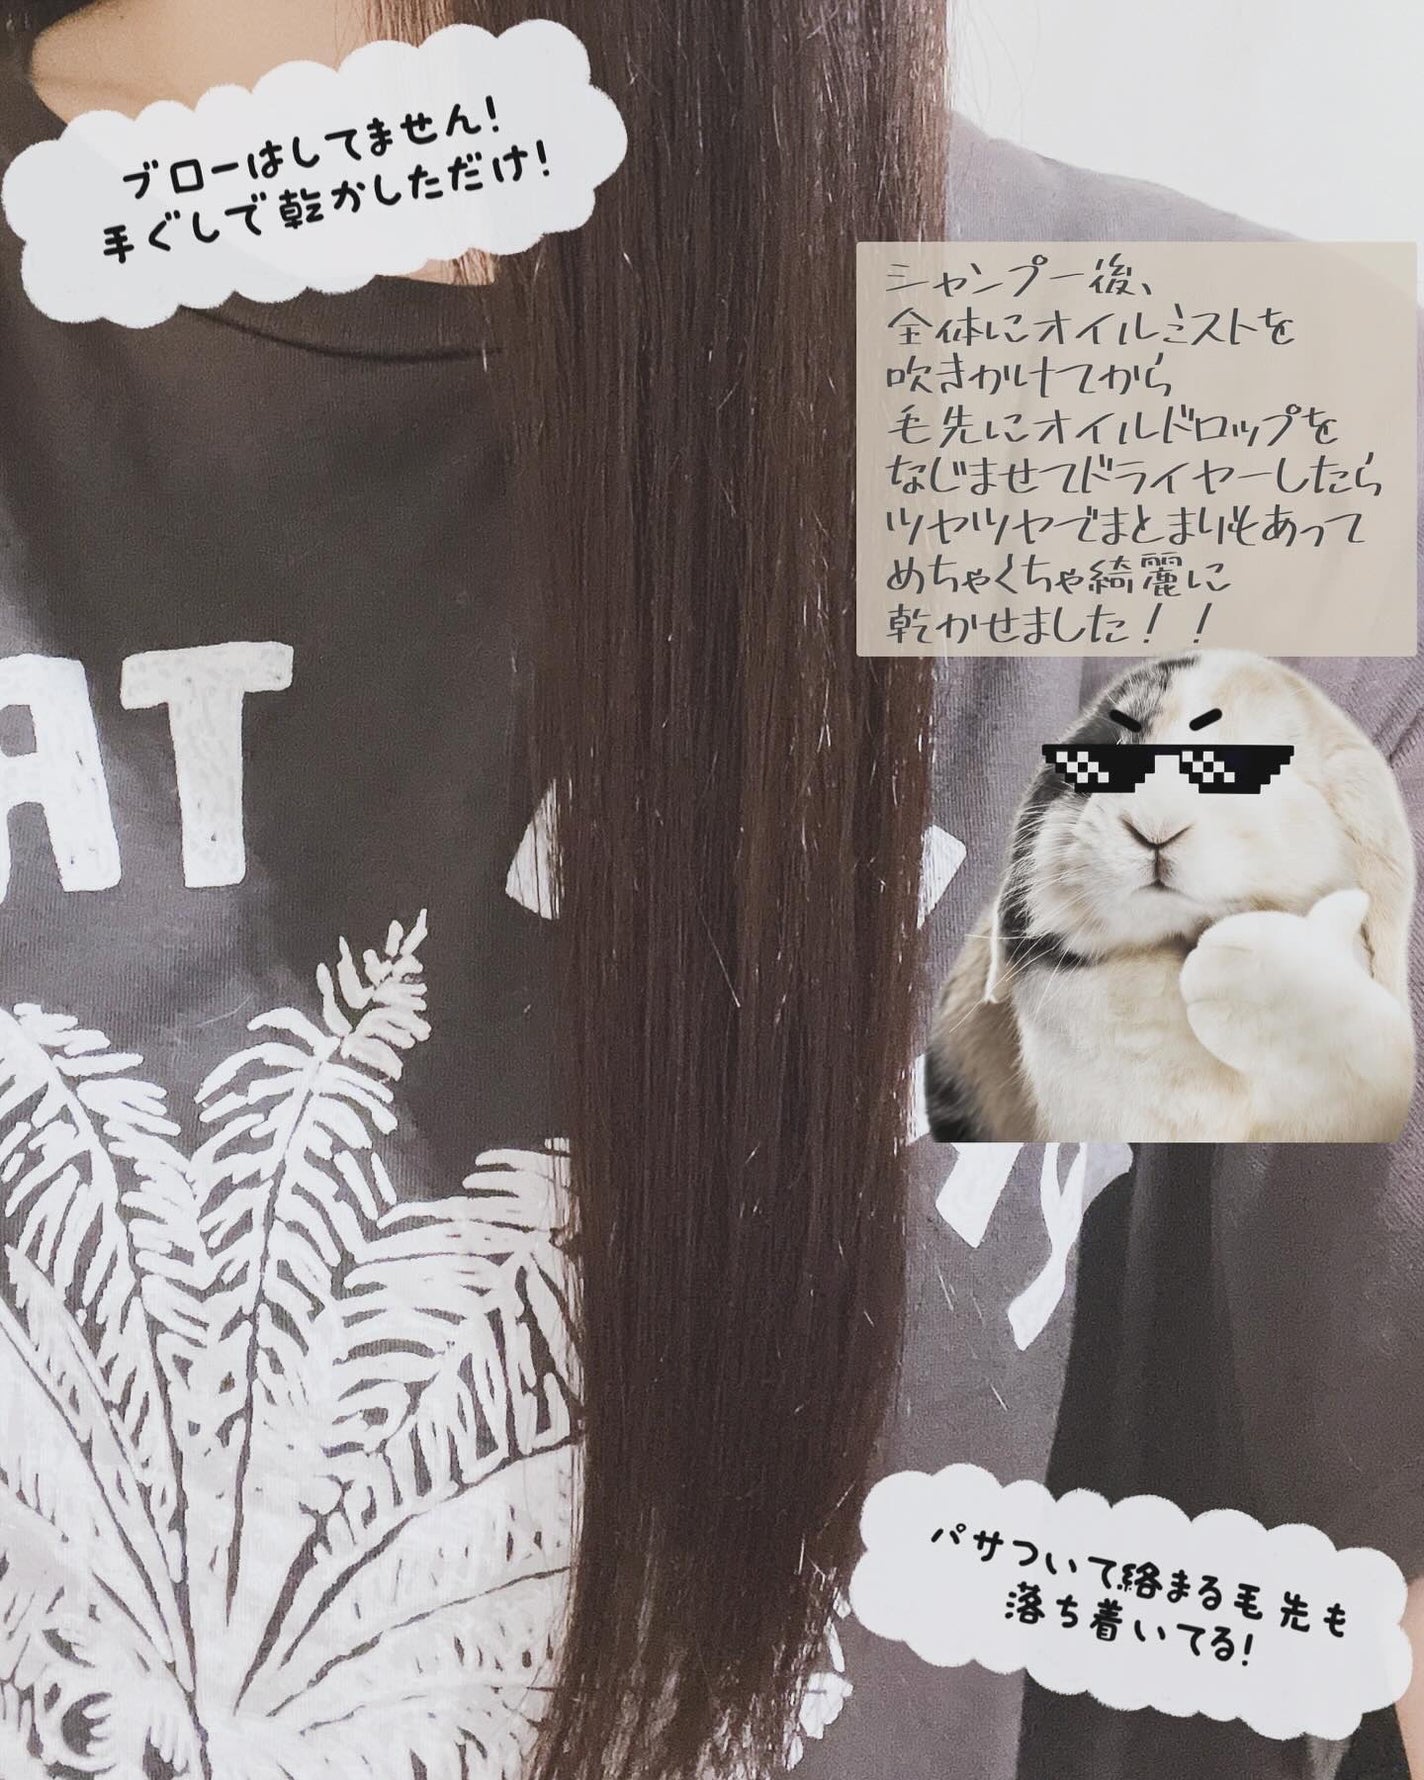 ブローはしてません!
手ぐしで乾かしただけ!
シャンプー後、
全体にオイルミストを
吹きかけてから
毛先にオイルドロップを
なじませてドライヤーしたら
ツヤツヤでまとまりもあって
めちゃくちゃ綺麗に
乾かせました！！
AT
パサついて絡まる毛先も
落ち着いてる!